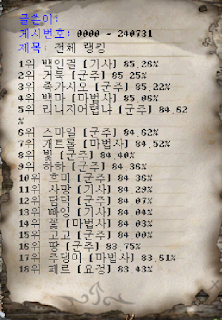 글쓴이:
게시번호: 0000 - 240731
제목: 전체 랭킹
1위 백인걸 [기사] 85.28%
2위 거룩 [군주] 85.25%
3위 족가시오 [군주] 85.22%
4위 백마 [마법사] 85.06%
5위 리니지어렵냐 [군주] 84.62
%
6위 스마일 [군주] 84.62%
7위 개트롤 [마법사] 84.52%
8위 빛 [군주] 84.40%
9위 하하 [군주] 84.36%
10위 호미 [군주] 84.36%
11위 사랑 [기사] 84.29%
12위 덤덤 [군주] 84.07%
13위 [기사] 84.04%
14위 꽃 [마법사] 84.03%
15위 고고 [군주] 84.00%
16위 땅 [군주] 83.75%
17위 주댕이 [마법사] 83.51%
18위 페르 [요정] 83.43%